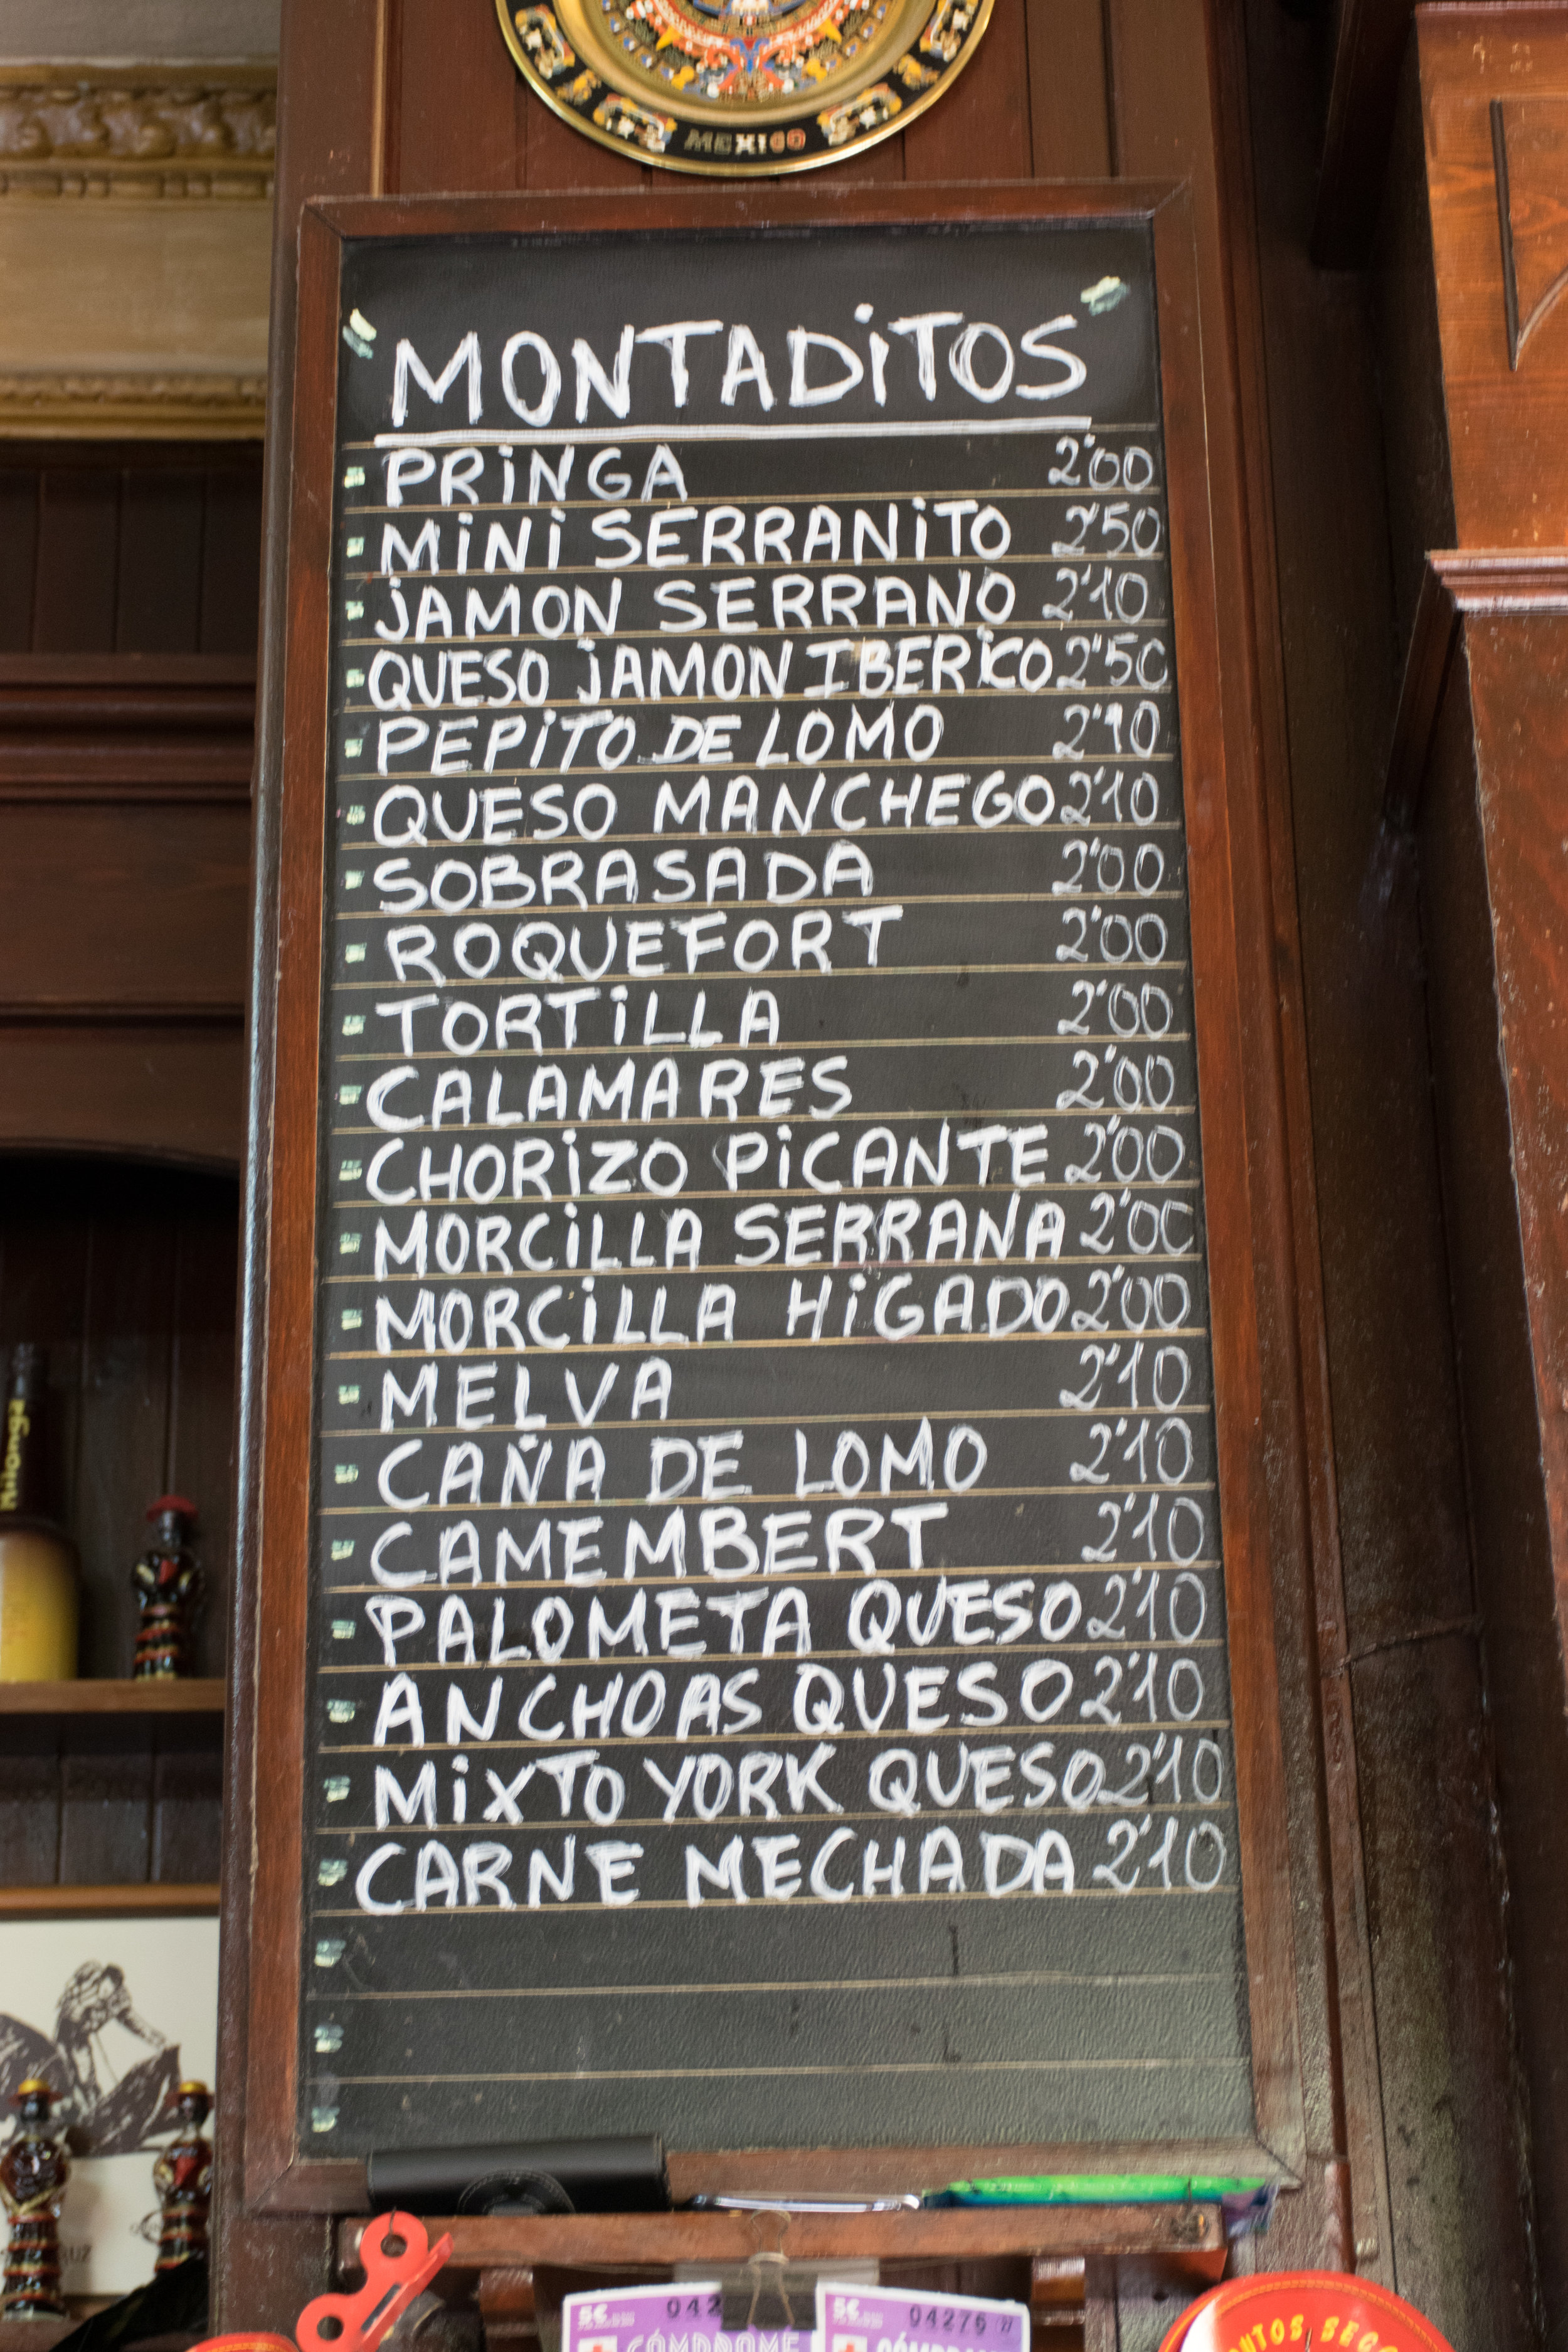 MEXICO
MONTADiTOS
PRiNGA 2'00
MiNi SERRANiTO 2'50
jAMON SERRANO 2'10
QUESO jAMON IBERiCO 2'50
PEPiTO DE LOMO 2'10
QUESO MANCHEGO 2'10
SOBRASADA 2'00
ROQUEFORT 2'00
TORTiLLA 2'00
CALAMARES 2'00
CHORiZO PiCANTE 2'00
MORCiLLA SERRANA 2'00
MORCiLLA HiGADO 2'00
MELVA 2'10
CAÑA DE LOMO 2'10
CAMEMBERT 2'10
PALOMETA QUESO 2'10
ANCHOAS QUESO 2'10
MiXTO YORK QUESO 2'10
CARNE MECHADA 2'10
Milonga
5€ 042
5€ 04276
CÓMPRAME